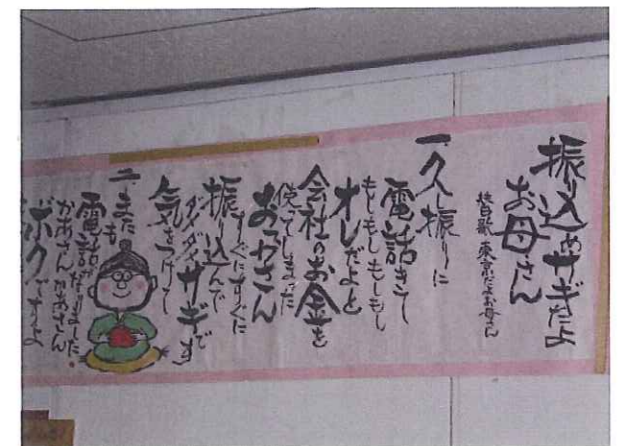 振り込めサギだよ
お母さん
替自歌 東京だよお母さん
一、久し振りに
電話きて
もしもしもしもし
オレだよと
会社のお金を
使ってしまった
おっかさん
すぐにすぐに
振り込んで
ダダダサギです
気をつけて
二、またも
電話がなりました
かあさんかあさん
ボクですよ